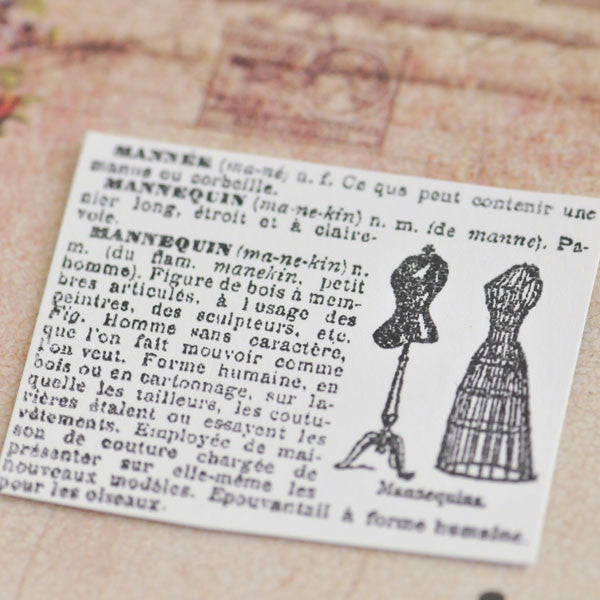 MANNÉE (ma-né) n. f. Ce que peut contenir une
manne ou corbeille.
MANNEQUIN (ma-ne-kin) n. m. (de manne). Pa-
nier long, étroit et à claire-
voie.
MANNEQUIN (ma-ne-kin) n.
m. (du flam. manekin, petit
homme). Figure de bois à mem-
bres articulés, à l'usage des
peintres, des sculpteurs, etc.
Fig. Homme sans caractère,
que l'on fait mouvoir comme
l'on veut. Forme humaine, en
bois ou en cartonnage, sur la-
quelle les tailleurs, les coutu-
rières étalent ou essayent les
vêtements. Employée de mai-
son de couture chargée de
présenter sur elle-même les
nouveaux modèles. Epouvantail à forme humaine,
pour les oiseaux.
Mannequins.